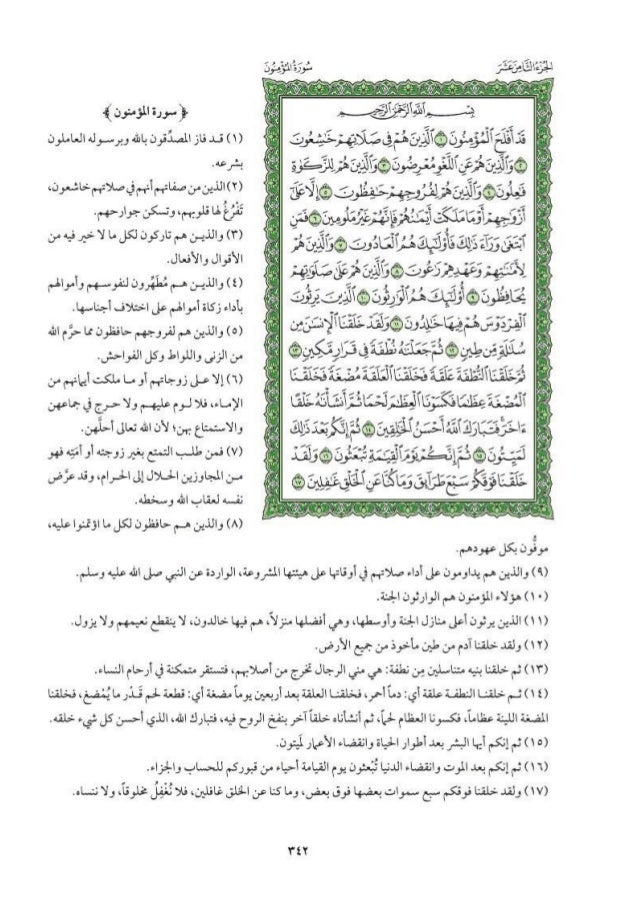 الجزء الثامن عشر
سورة المؤمنون
بِسْمِ اللَّهِ الرَّحْمَٰنِ الرَّحِيمِ
قَدْ أَفْلَحَ الْمُؤْمِنُونَ ١ الَّذِينَ هُمْ فِي صَلَاتِهِمْ خَاشِعُونَ
٢ وَالَّذِينَ هُمْ عَنِ اللَّغْوِ مُعْرِضُونَ ٣ وَالَّذِينَ هُمْ لِلزَّكَوٰةِ
فَٰعِلُونَ ٤ وَالَّذِينَ هُمْ لِفُرُوجِهِمْ حَٰفِظُونَ ٥ إِلَّا عَلَىٰ
أَزْوَٰجِهِمْ أَوْ مَا مَلَكَتْ أَيْمَٰنُهُمْ فَإِنَّهُمْ غَيْرُ مَلُومِينَ ٦ فَمَنِ
ابْتَغَىٰ وَرَاءَ ذَٰلِكَ فَأُولَٰئِكَ هُمُ الْعَادُونَ ٧ وَالَّذِينَ هُمْ
لِأَمَٰنَٰتِهِمْ وَعَهْدِهِمْ رَٰعُونَ ٨ وَالَّذِينَ هُمْ عَلَىٰ صَلَوَٰتِهِمْ
يُحَافِظُونَ ٩ أُولَٰئِكَ هُمُ الْوَٰرِثُونَ ١٠ الَّذِينَ يَرِثُونَ
الْفِرْدَوْسَ هُمْ فِيهَا خَٰلِدُونَ ١١ وَلَقَدْ خَلَقْنَا الْإِنسَٰنَ مِن
سُلَٰلَةٍ مِّن طِينٍ ١٢ ثُمَّ جَعَلْنَٰهُ نُطْفَةً فِي قَرَارٍ مَّكِينٍ ١٣
ثُمَّ خَلَقْنَا النُّطْفَةَ عَلَقَةً فَخَلَقْنَا الْعَلَقَةَ مُضْغَةً فَخَلَقْنَا
الْمُضْغَةَ عِظَٰمًا فَكَسَوْنَا الْعِظَٰمَ لَحْمًا ثُمَّ أَنشَأْنَٰهُ خَلْقًا
ءَاخَرَ فَتَبَارَكَ اللَّهُ أَحْسَنُ الْخَٰلِقِينَ ١٤ ثُمَّ إِنَّكُم بَعْدَ ذَٰلِكَ
لَمَيِّتُونَ ١٥ ثُمَّ إِنَّكُمْ يَوْمَ الْقِيَٰمَةِ تُبْعَثُونَ ١٦ وَلَقَدْ
خَلَقْنَا فَوْقَكُمْ سَبْعَ طَرَائِقَ وَمَا كُنَّا عَنِ الْخَلْقِ غَٰفِلِينَ ١٧
﴿ سورة المؤمنون ﴾
(١) قـد فاز المصدِّقون بالله وبرسـوله العاملون
بشرعه.
(٢) الذين من صفاتهم أنهم في صلاتهم خاشعون،
تَفْرُغُ لها قلوبهم، وتسكن جوارحهم.
(٣) والذيـن هم تاركون لكل ما لا خير فيه من
الأقوال والأفعال.
(٤) والذيـن هـم مُطَهِّرون لنفوسـهم وأموالهم
بأداء زكاة أموالهم على اختلاف أجناسها.
(٥) والذين هم لفروجهم حافظون مما حرَّم الله
من الزنى واللواط وكل الفواحش.
(٦) إلا عـلى زوجاتهم أو مـا ملكت أيمانهم من
الإماء، فلا لـوم عليهـم ولا حـرج في جماعهن
والاستمتاع بهن؛ لأن الله تعالى أحلَّهن.
(٧) فمن طلـب التمتع بغير زوجته أو أمَتِه فهو
مـن المجاوزين الحـلال إلى الحـرام، وقد عرَّض
نفسه لعقاب الله وسخطه.
(٨) والذين هـم حافظون لكل ما اؤتمنوا عليه،
موفُّون بكل عهودهم.
(٩) والذين هم يداومون على أداء صلاتهم في أوقاتها على هيئتها المشروعة، الواردة عن النبي صلى الله عليه وسلم.
(١٠) هؤلاء المؤمنون هم الوارثون الجنة.
(١١) الذين يرثون أعلى منازل الجنة وأوسطها، وهي أفضلها منزلاً، هم فيها خالدون، لا ينقطع نعيمهم ولا يزول.
(١٢) ولقد خلقنا آدم من طين مأخوذ من جميع الأرض.
(١٣) ثم خلقنا بنيه متناسلين مِن نطفة: هي مني الرجال تخرج من أصلابهم، فتستقر متمكنة في أرحام النساء.
(١٤) ثـم خلقنـا النطفـة علقة أي: دماً أحمر، فخلقنـا العلقة بعد أربعين يوماً مضغة أي: قطعة لحم قَدْر ما يُمْضغ، فخلقنا
المضغة اللينة عظاماً، فكسونا العظام لحماً، ثم أنشأناه خلقاً آخر بنفخ الروح فيه، فتبارك الله، الذي أحسن كل شيء خلقه.
(١٥) ثم إنكم أيها البشر بعد أطوار الحياة وانقضاء الأعمار لَميتون.
(١٦) ثم إنكم بعد الموت وانقضاء الدنيا تُبْعثون يوم القيامة أحياء من قبوركم للحساب والجزاء.
(١٧) ولقد خلقنا فوقكم سبع سموات بعضها فوق بعض، وما كنا عن الخلق غافلين، فلا نُغْفِلُ مخلوقاً، ولا ننساه.
٣٤٢